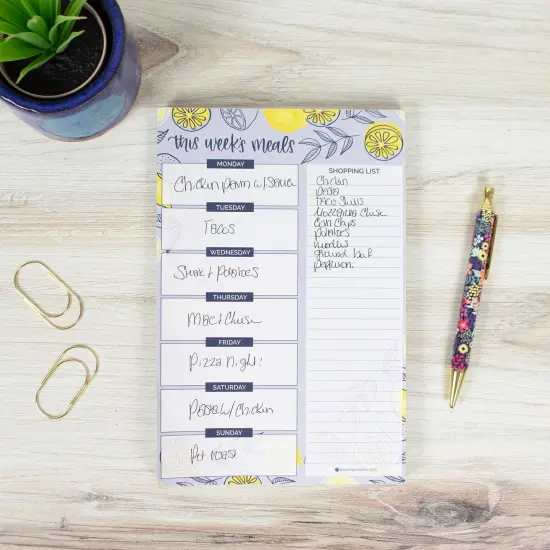 this week's meals
MONDAY
Chicken parm w/
TUESDAY
Tacos
WEDNESDAY
Steak & Potatoes
THURSDAY
Mac & Cheese
FRIDAY
Pizza Night!
SATURDAY
Pasta w/ Chicken
SUNDAY
Pot roast
SHOPPING LIST
Chicken
pasta
Taco Shells
Mozzarella Cheese
Corn Chips
potatoes
noodles
ground beef